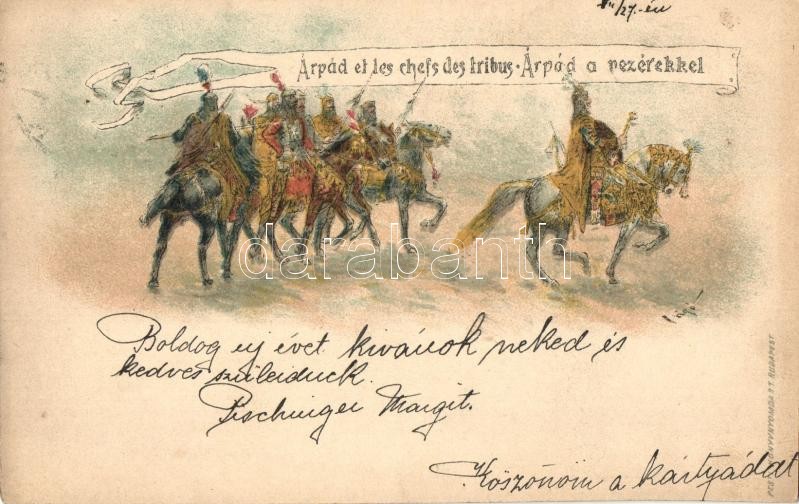 XII/27.-én
Árpád et les chefs des tribus · Árpád a vezérekkel
darabanth
Boldog uj évet kivánok neked és
kedves szüleidnek.
Pischinger Margit.
Köszönöm a kártyádat
KÖNYVNYOMDA R.T. BUDAPEST